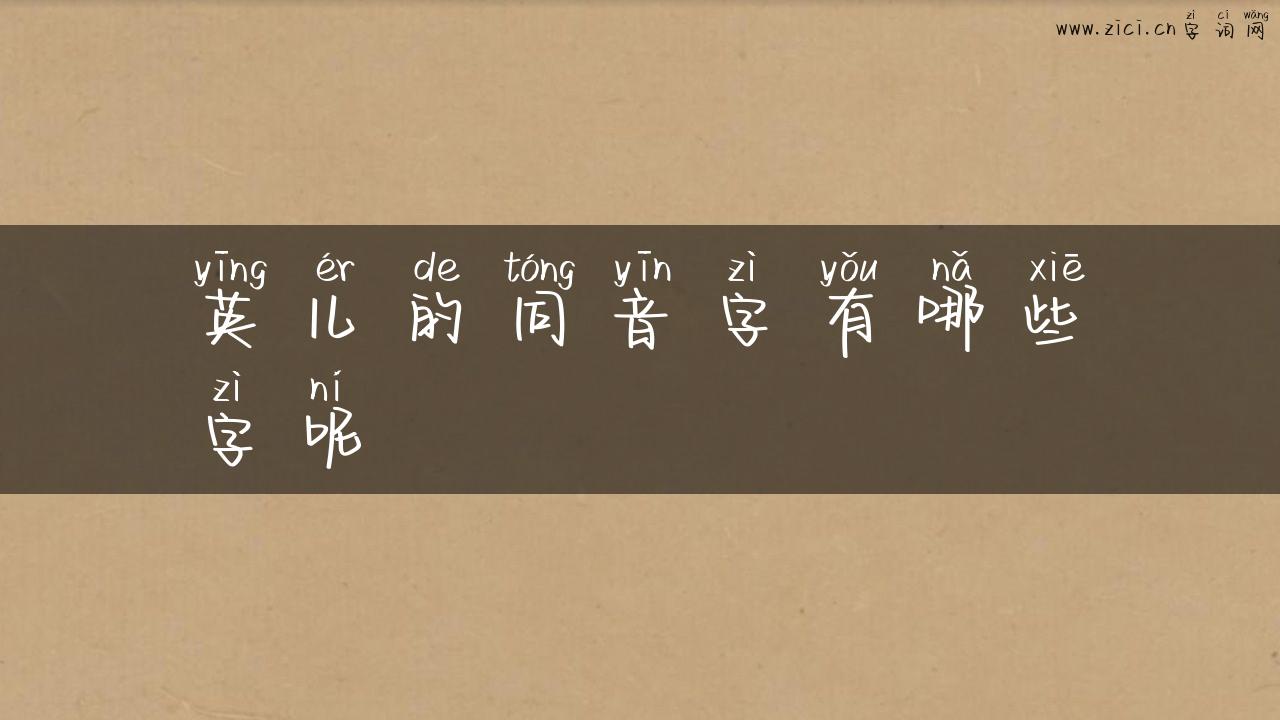 zì cí wǎng
www.zici.cn 字 词 网
yīng ér de tóng yīn zì yǒu nǎ xiē
英 儿 的 同 音 字 有 哪 些
zì ní
字 呢